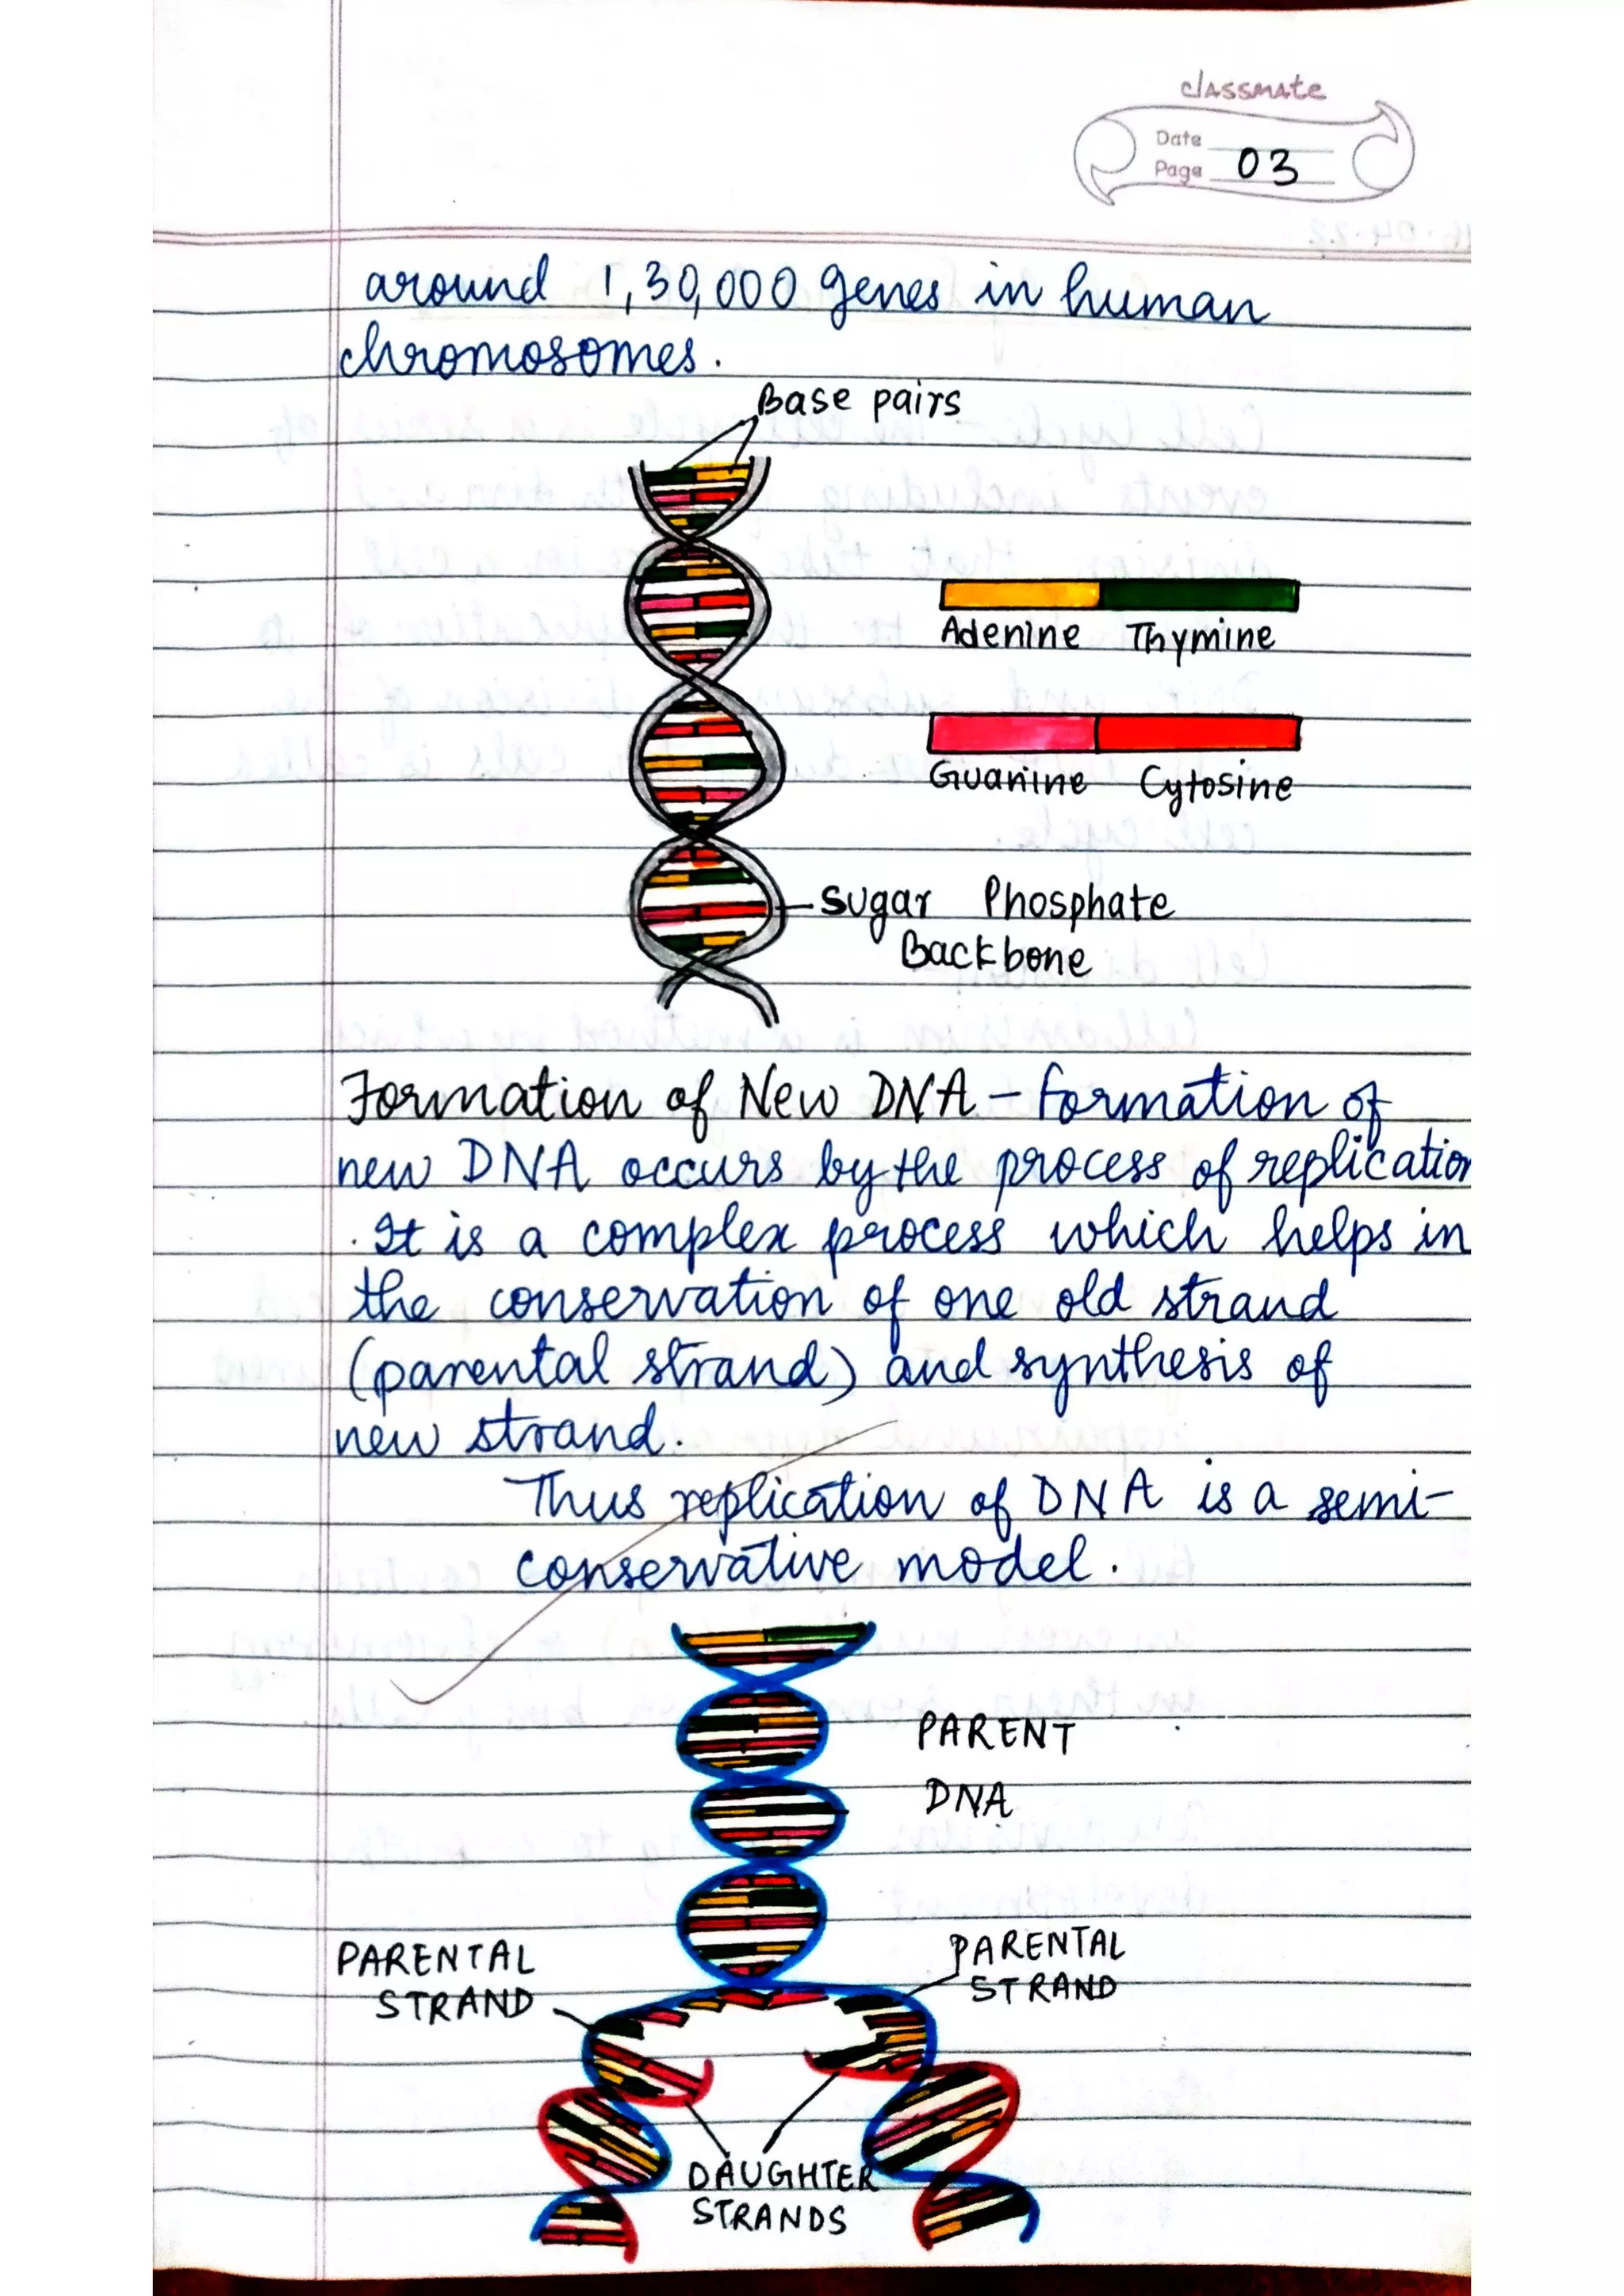 classmate
Date
Page 03
around 1,30,000 genes in human
chromosomes.
Base pairs
Adenine Thymine
Guanine Cytosine
Sugar Phosphate
Backbone
Formation of New DNA - formation of
new DNA occurs by the process of replication
. It is a complex process which helps in
the conservation of one old strand
(parental strand) and synthesis of
new strand.
Thus replication of DNA is a semi-
conservative model.
PARENT
DNA
PARENTAL
STRAND
PARENTAL
STRAND
DAUGHTER
STRANDS